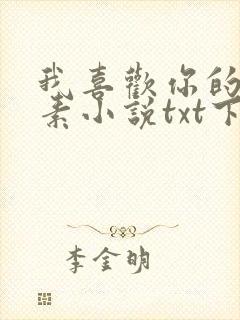 我喜歡你的
素小說txt下
李金明